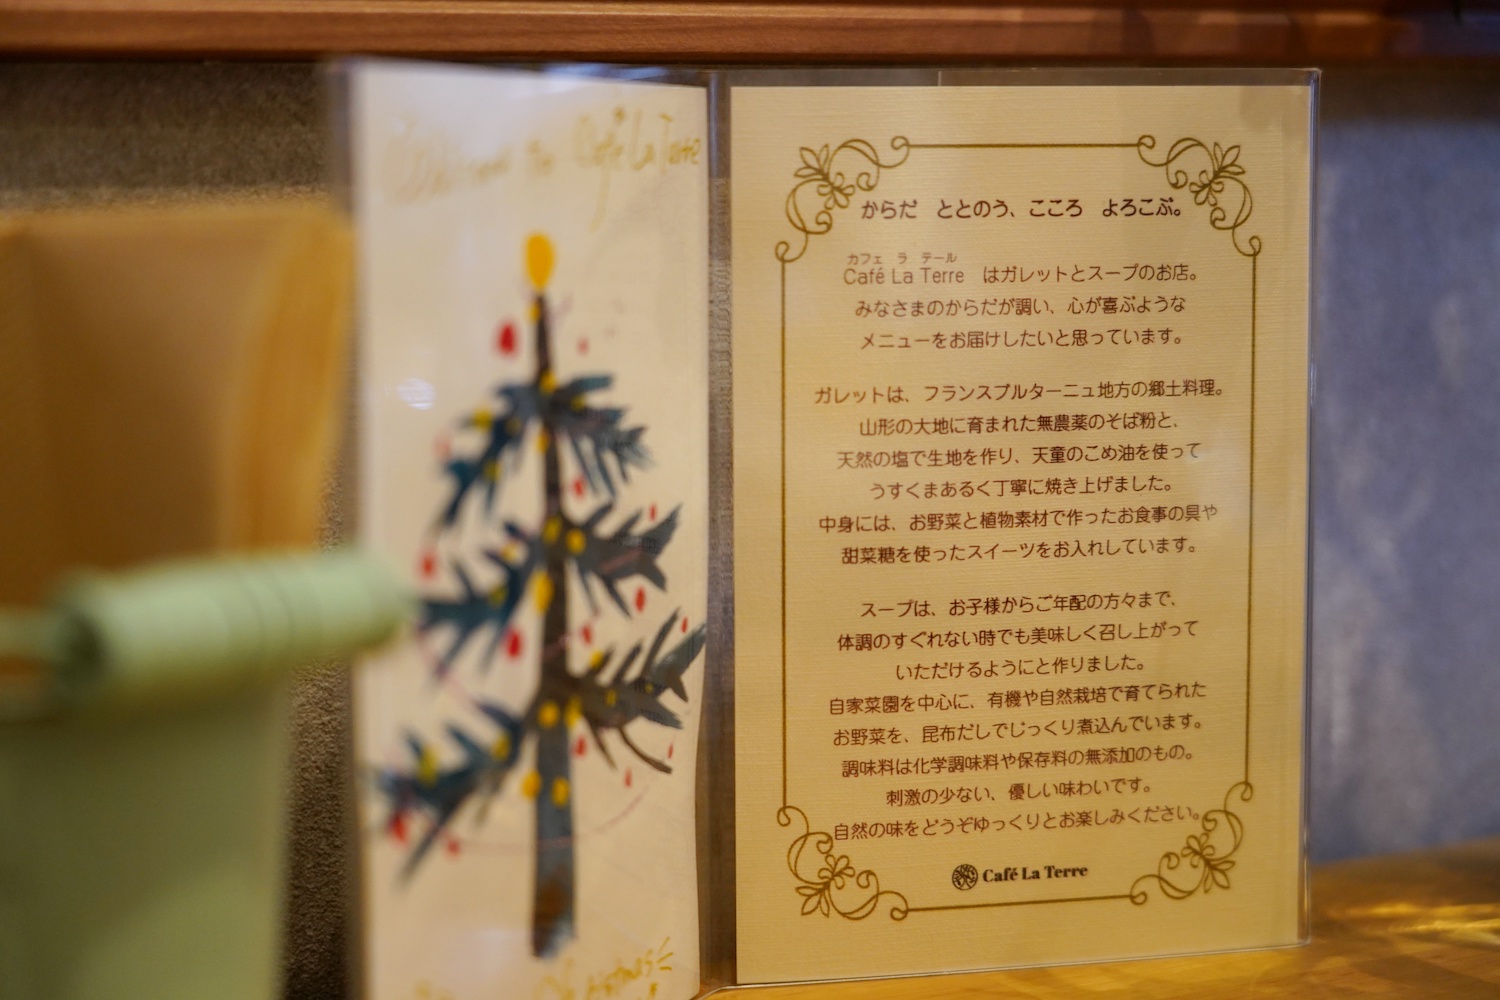 Café La Terre
からだ　ととのう、こころ　よろこぶ。
カフェ　ラ　テール
Café La Terre　はガレットとスープのお店。
みなさまのからだが調い、心が喜ぶような
メニューをお届けしたいと思っています。
ガレットは、フランスブルターニュ地方の郷土料理。
山形の大地に育まれた無農薬のそば粉と、
天然の塩で生地を作り、天童のこめ油を使って
うすくまあるく丁寧に焼き上げました。
中身には、お野菜と植物素材で作ったお食事の具や
甜菜糖を使ったスイーツをお入れしています。
スープは、お子様からご年配の方々まで、
体調のすぐれない時でも美味しく召し上がって
いただけるようにと作りました。
自家菜園を中心に、有機や自然栽培で育てられた
お野菜を、昆布だしでじっくり煮込んでいます。
調味料は化学調味料や保存料の無添加のもの。
刺激の少ない、優しい味わいです。
自然の味をどうぞゆっくりとお楽しみください。
Café La Terre